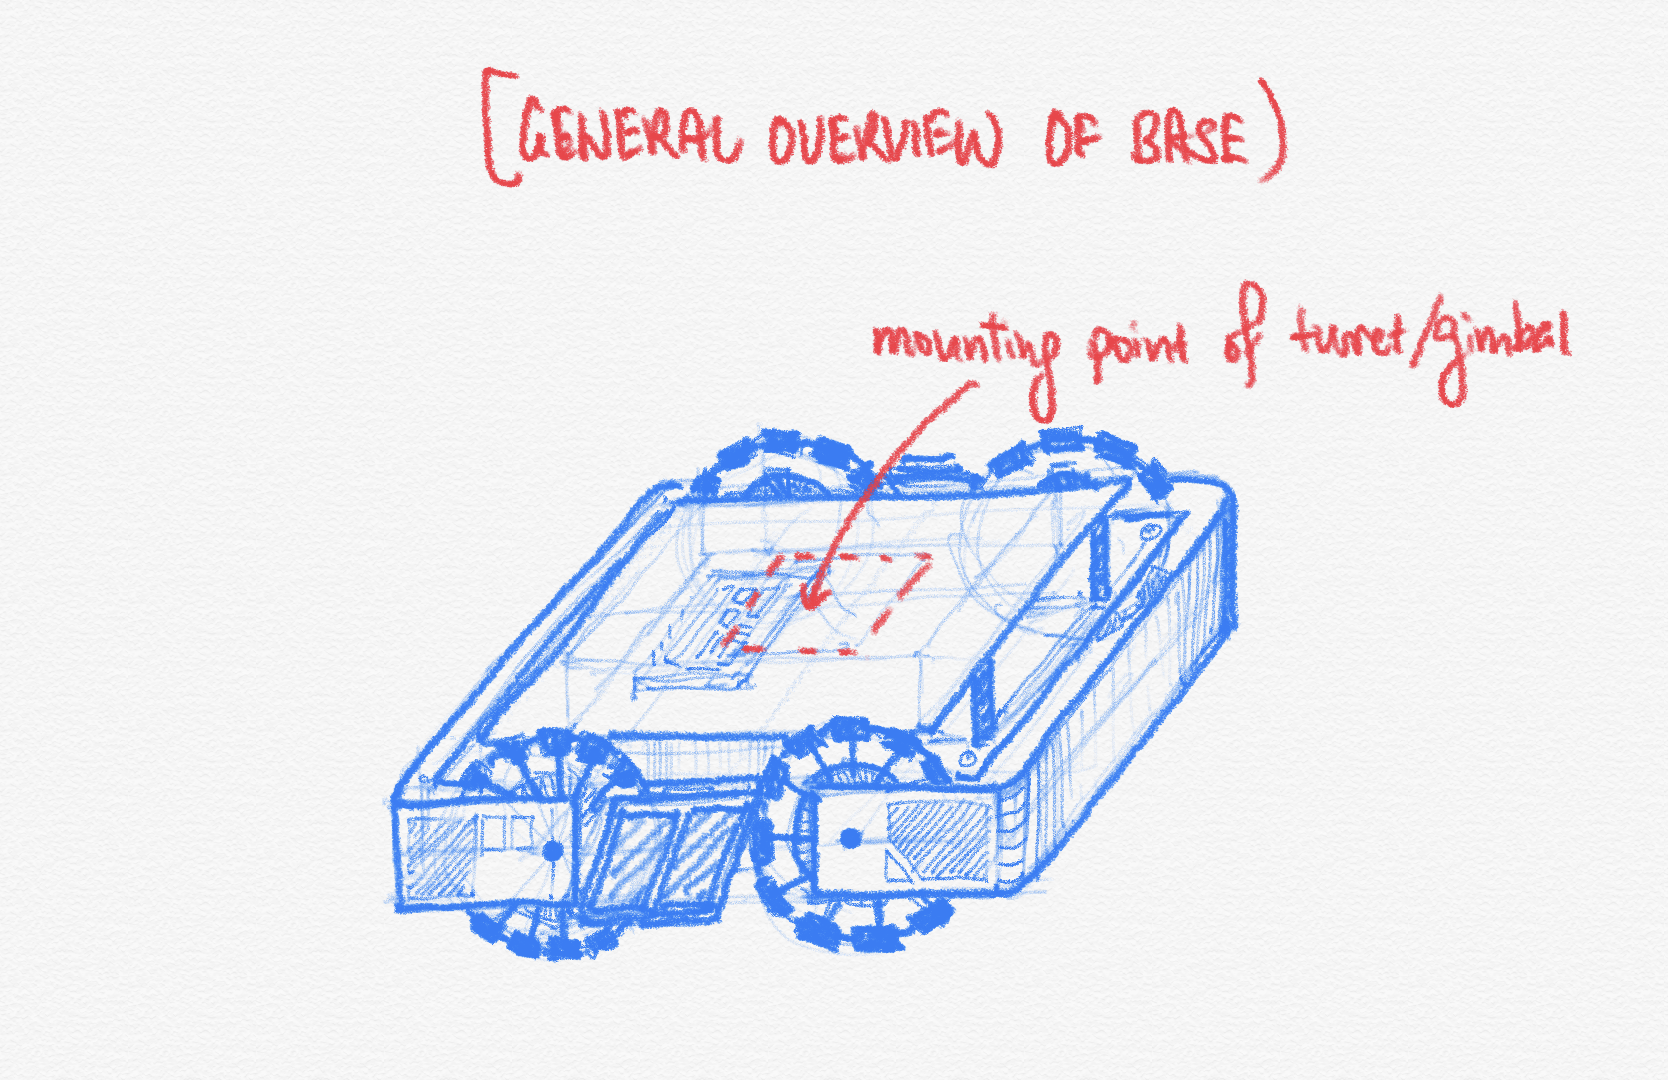 [GENERAL OVERVIEW OF BASE)
mounting point of turret/gimbal